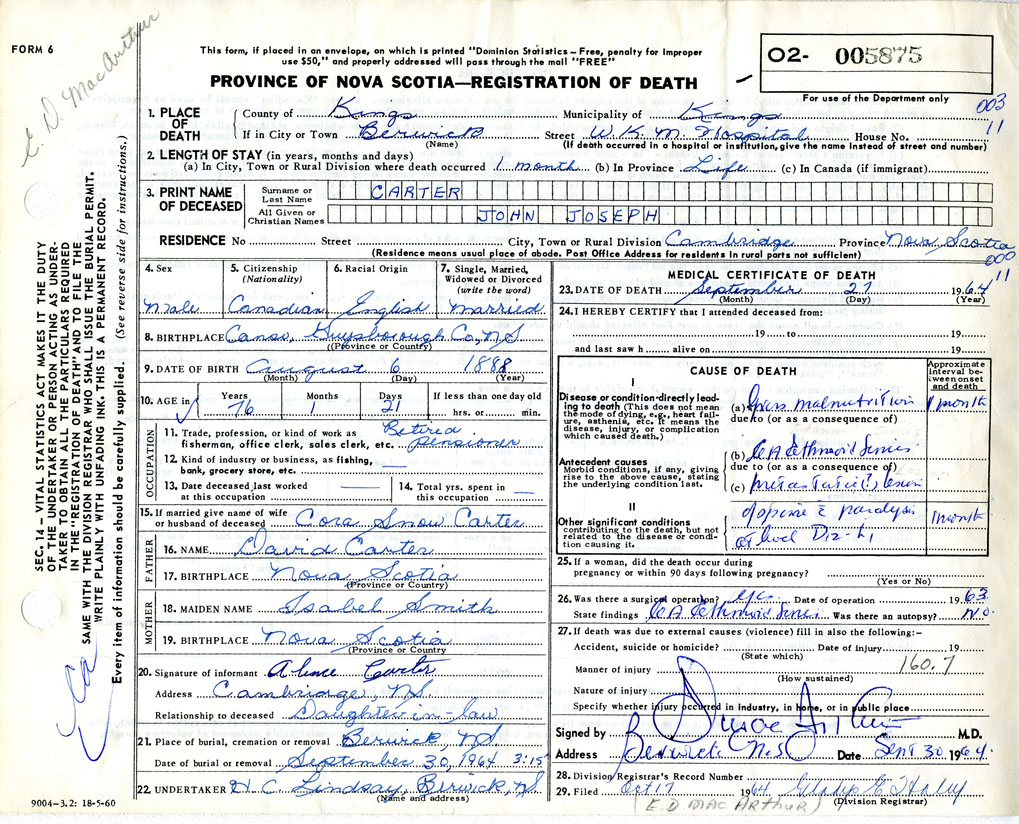 E. D. MacArthur
FORM 6
This form, if placed in an envelope, on which is printed "Dominion Statistics – Free, penalty for improper
use $50," and properly addressed will pass through the mail "FREE"
PROVINCE OF NOVA SCOTIA—REGISTRATION OF DEATH
02- 005875
For use of the Department only
003
11
1. PLACE OF DEATH County of Kings Municipality of Kings
If in City or Town Berwick Street W. K. M. Hospital House No.
(Name) (If death occurred in a hospital or institution, give the name instead of street and number)
2. LENGTH OF STAY (in years, months and days)
(a) In City, Town or Rural Division where death occurred 1 month (b) In Province Life (c) In Canada (if immigrant)
3. PRINT NAME OF DECEASED Surname or Last Name CARTER
All Given or Christian Names JOHN JOSEPH
RESIDENCE No Street City, Town or Rural Division Cambridge Province Nova Scotia
(Residence means usual place of abode. Post Office Address for residents in rural parts not sufficient)
000
11
SEC. 14 – VITAL STATISTICS ACT MAKES IT THE DUTY
OF THE UNDERTAKER OR PERSON ACTING AS UNDER-
TAKER TO OBTAIN ALL THE PARTICULARS REQUIRED
IN THE "REGISTRATION OF DEATH" AND TO FILE THE
SAME WITH THE DIVISION REGISTRAR WHO SHALL ISSUE THE BURIAL PERMIT.
WRITE PLAINLY WITH UNFADING INK. THIS IS A PERMANENT RECORD.
Every item of information should be carefully supplied. (See reverse side for instructions.)
4. Sex 5. Citizenship (Nationality) 6. Racial Origin 7. Single, Married, Widowed or Divorced (write the word)
Male Canadian English Married
8. BIRTHPLACE Canso, Guysborough Co, N.S
(Province or Country)
9. DATE OF BIRTH August 6 1888
(Month) (Day) (Year)
10. AGE in Years Months Days If less than one day old
76 1 21 hrs. or min.
OCCUPATION
11. Trade, profession, or kind of work as fisherman, office clerk, sales clerk, etc. Retired pensioner
12. Kind of industry or business, as fishing, bank, grocery store, etc. —
13. Date deceased last worked at this occupation — 14. Total yrs. spent in this occupation —
15. If married give name of wife or husband of deceased Cora Snow Carter
FATHER
16. NAME David Carter
17. BIRTHPLACE Nova Scotia
(Province or Country)
MOTHER
18. MAIDEN NAME Isabel Smith
19. BIRTHPLACE Nova Scotia
(Province or Country)
20. Signature of informant Carter
Address Cambridge, NS
Relationship to deceased Daughter-in-law
21. Place of burial, cremation or removal Berwick, NS
Date of burial or removal September 30, 1964 3:15
22. UNDERTAKER H. C. Lindsay, Berwick, NS
(Name and address)
9004–3.2: 18-5-60
MEDICAL CERTIFICATE OF DEATH
23. DATE OF DEATH September 27 1964
(Month) (Day) (Year)
24. I HEREBY CERTIFY that I attended deceased from:
19 to 19
and last saw h alive on 19
CAUSE OF DEATH Approximate interval between onset and death
I
Disease or condition directly leading to death (This does not mean the mode of dying, e.g., heart failure, asthenia, etc. It means the disease, injury, or complication which caused death.)
(a) Gross malnutrition 1 month
due to (or as a consequence of)
(b) CA Ethmoid Sinus
Antecedent causes
Morbid conditions, if any, giving rise to the above cause, stating the underlying condition last.
due to (or as a consequence of)
(c) metastatic lesion
II
Other significant conditions
contributing to the death, but not related to the disease or condition causing it.
paralysis 1 month
level D12-L1
25. If a woman, did the death occur during
pregnancy or within 90 days following pregnancy?
(Yes or No)
26. Was there a surgical operation? yes Date of operation 1963
State findings CA Ethmoid Sinus Was there an autopsy? No.
27. If death was due to external causes (violence) fill in also the following:–
Accident, suicide or homicide? Date of injury 19
(State which)
Manner of injury 160.7
(How sustained)
Nature of injury
Specify whether injury occurred in industry, in home, or in public place
Signed by M.D.
Address Berwick N.S. Date Sept 30 1964
28. Division Registrar's Record Number
29. Filed Oct 17 1964 Gladys E Haley
(E. D MACARTHUR) (Division Registrar)